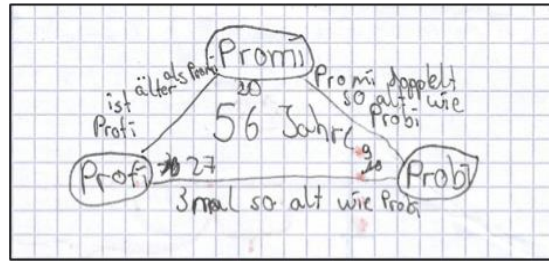 Promi
20
ist älter als Promi
Profi
Promi doppelt
so alt wie
Probi
56 Jahre
9
Profi
27
Probi
3 mal so alt wie Probi